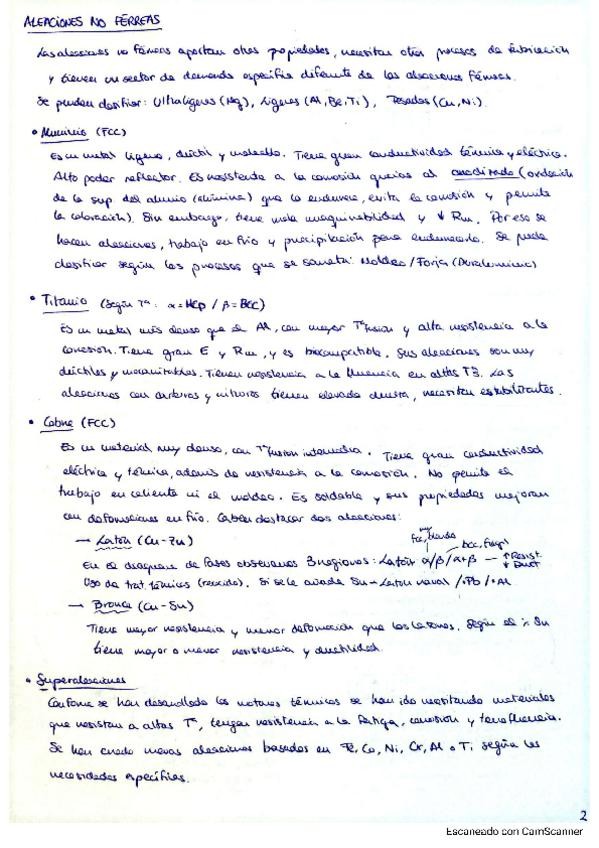 ALEACIONES NO FÉRREAS
Las aleaciones no férreas aportan otras propiedades, necesitan otros procesos de fabricación
y tienen un sector de demanda específica diferente de las aleaciones férreas.
Se pueden clasificar: Ultraligeros (Mg), Ligeros (Al, Be, Ti), Pesados (Cu, Ni).
• Aluminio (FCC)
Es un metal ligero, dúctil y maleable. Tiene gran conductividad térmica y eléctrica.
Alto poder reflector. Es resistente a la corrosión gracias al anodizado (oxidación
de la sup. del aluminio (alúmina) que lo endurece, evita la corrosión y permite
la coloración). Sin embargo, tiene mala maquinabilidad y ↓ Rm. Por eso se
hacen aleaciones, trabajo en frío y precipitación para endurecerlo. Se puede
clasificar según los procesos que se someta: Moldeo / Forja (Duraluminio)
• Titanio (según Tª: α = HCP / β = BCC)
Es un metal más denso que el Al, con mayor Tª fusión y alta resistencia a la
corrosión. Tiene gran E y Rm, y es biocompatible. Sus aleaciones son muy
dúctiles y Tienen resistencia a la fluencia en altas Tª. Las
aleaciones con carburos y nitruros tienen elevada dureza, necesitan estabilizantes.
• Cobre (FCC)
Es un material muy denso, con Tª fusión intermedia. Tiene gran conductividad
eléctrica y térmica, además de resistencia a la corrosión. No permite el
trabajo en caliente ni el moldeo. Es soldable y sus propiedades mejoran
con deformaciones en frío. Caben destacar dos aleaciones:
→ Latón (Cu-Zn)
muy
fcc, blanda
bcc, frágil
En el diagrama de fases observamos 3 regiones: Latón α / β / α+β → ↑ Resist. ↓ Duct
Uso de trat. térmicos (recocido). Si se le añade Sn → Latón naval / · Pb / · Al
→ Bronce (Cu-Sn)
Tiene mayor resistencia y menor deformación que los latones. Según el % Sn
tiene mayor o menor resistencia y ductilidad.
• Superaleaciones
Conforme se han desarrollado los motores térmicos se han ido necesitando materiales
que resistan a altas Tª, tengan resistencia a la fatiga, corrosión y termofluencia.
Se han creado nuevas aleaciones basadas en Fe, Co, Ni, Cr, Al o Ti según las
necesidades específicas.
2
Escaneado con CamScanner